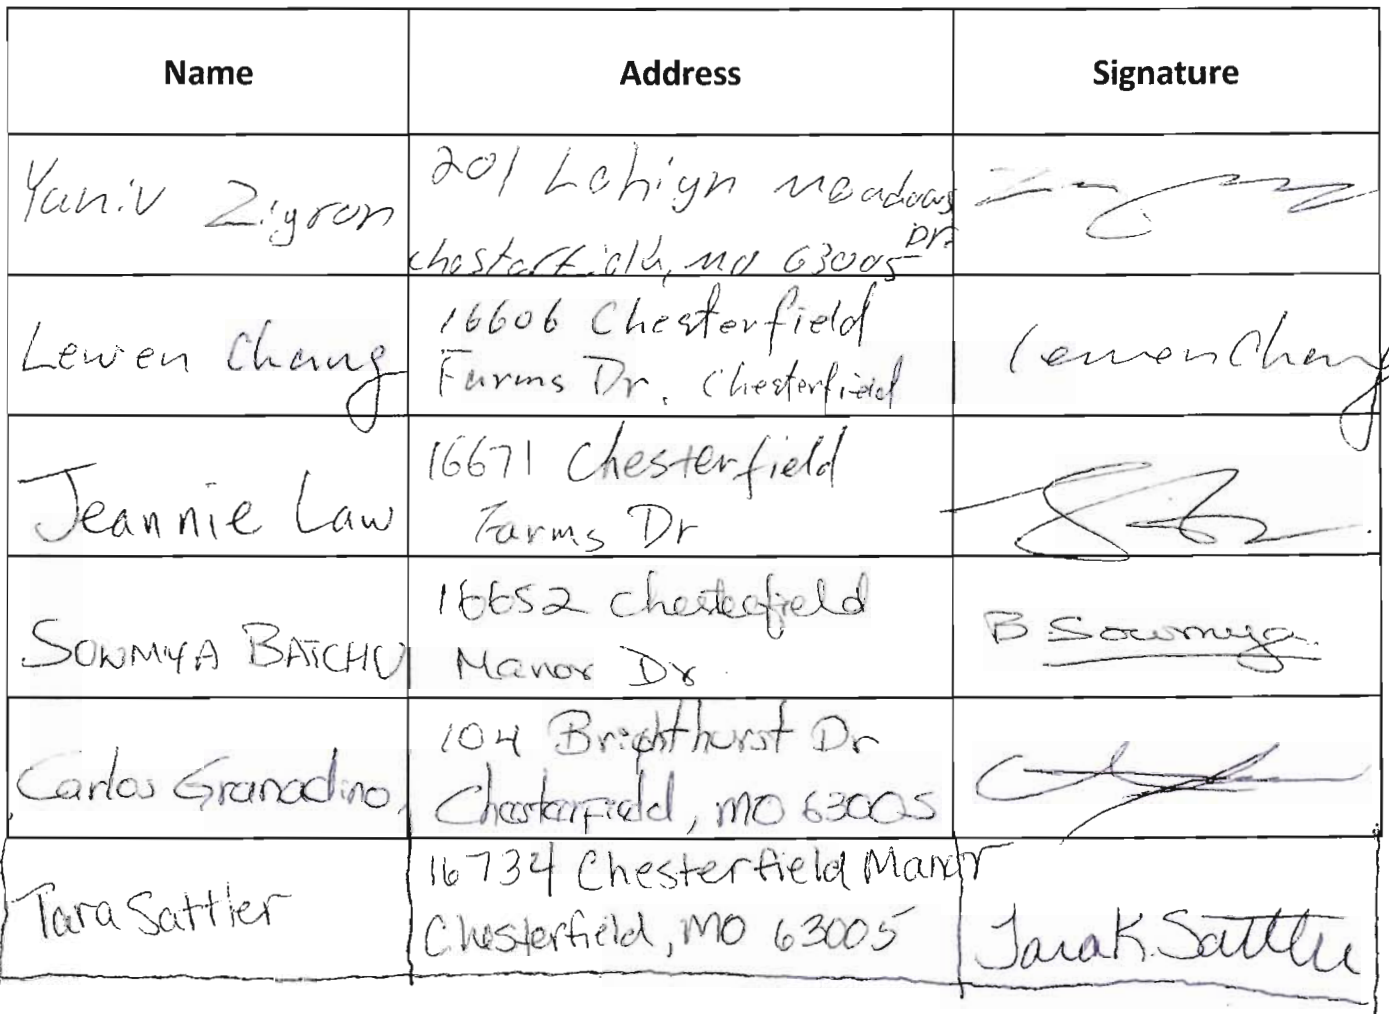 Name Address Signature
Yaniv Zigron 201 Lehigh Meadows Dr.
Chesterfield, MO 63005
Lewen Chang 16606 Chesterfield Lewen Chang
Farms Dr, Chesterfield
Jeannie Law 16671 Chesterfield
Farms Dr
SOWMYA BATCHU 16652 Chesterfield B Sowmya
Manor Dr.
Carlos Granadino 104 Brighthurst Dr
Chesterfield, MO 63005
Tara Sattler 16734 Chesterfield Manor Tara K. Sattler
Chesterfield, MO 63005